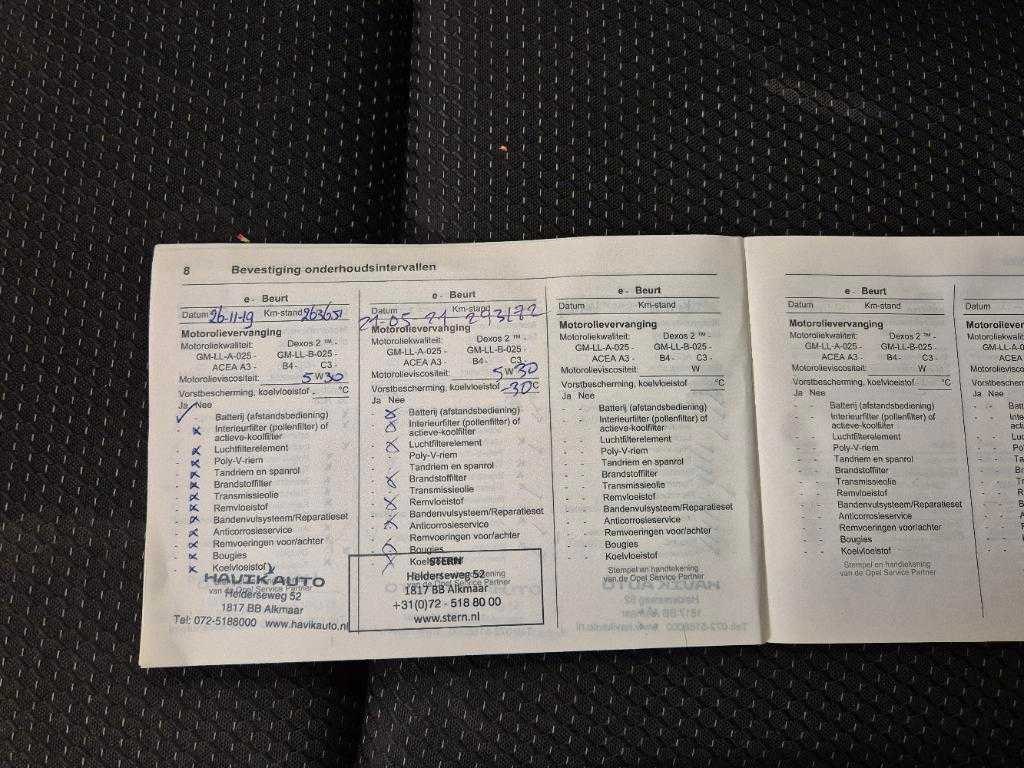 8 Bevestiging onderhoudsintervallen
e - Beurt
Datum 26-11-19 Km-stand 263651
Motorolievervanging
Motoroliekwaliteit: Dexos 2 ™ -
GM-LL-A-025 - GM-LL-B-025 -
ACEA A3 - B4 - C3 -
Motorolieviscositeit: 5 W 30
Vorstbescherming, koelvloeistof - °C
Ja Nee
Batterij (afstandsbediening)
Interieurfilter (pollenfilter) of
actieve-koolfilter
Luchtfilterelement
Poly-V-riem
Tandriem en spanrol
Brandstoffilter
Transmissieolie
Remvloeistof
Bandenvulsysteem/Reparatieset
Anticorrosieservice
Remvoeringen voor/achter
Bougies
Koelvloeistof
HAVIK AUTO
van de Opel Service Partner
Helderseweg 52
1817 BB Alkmaar
Tel: 072-5188000 www.havikauto.nl
e - Beurt
Datum Km-stand
21-05-21 - 293172
Motorolievervanging
Motoroliekwaliteit: Dexos 2 ™ -
GM-LL-A-025 - GM-LL-B-025 -
ACEA A3 - B4 - C3 -
Motorolieviscositeit: 5 W 30
Vorstbescherming, koelvloeistof -30°C
Ja Nee
Batterij (afstandsbediening)
Interieurfilter (pollenfilter) of
actieve-koolfilter
Luchtfilterelement
Poly-V-riem
Tandriem en spanrol
Brandstoffilter
Transmissieolie
Remvloeistof
Bandenvulsysteem/Reparatieset
Anticorrosieservice
Remvoeringen voor/achter
Bougies
STERN
Helderseweg 52
van de Opel Service Partner
1817 BB Alkmaar
+31(0)72 - 518 80 00
www.stern.nl
e - Beurt
Datum Km-stand
Motorolievervanging
Motoroliekwaliteit: Dexos 2 ™ -
GM-LL-A-025 - GM-LL-B-025 -
ACEA A3 - B4 - C3 -
Motorolieviscositeit: W
Vorstbescherming, koelvloeistof °C
Ja Nee
Batterij (afstandsbediening)
Interieurfilter (pollenfilter) of
actieve-koolfilter
Luchtfilterelement
Poly-V-riem
Tandriem en spanrol
Brandstoffilter
Transmissieolie
Remvloeistof
Bandenvulsysteem/Reparatieset
Anticorrosieservice
Remvoeringen voor/achter
Bougies
Koelvloeistof
Stempel en handtekening
van de Opel Service Partner
e - Beurt
Datum Km-stand
Motorolievervanging
Motoroliekwaliteit: Dexos 2 ™ -
GM-LL-A-025 - GM-LL-B-025 -
ACEA A3 - B4 - C3 -
Motorolieviscositeit: W
Vorstbescherming, koelvloeistof °C
Ja Nee
Batterij (afstandsbediening)
Interieurfilter (pollenfilter) of
actieve-koolfilter
Luchtfilterelement
Poly-V-riem
Tandriem en spanrol
Brandstoffilter
Transmissieolie
Remvloeistof
Bandenvulsysteem/Reparatieset
Anticorrosieservice
Remvoeringen voor/achter
Bougies
Koelvloeistof
Stempel en handtekening
van de Opel Service Partner
Datum